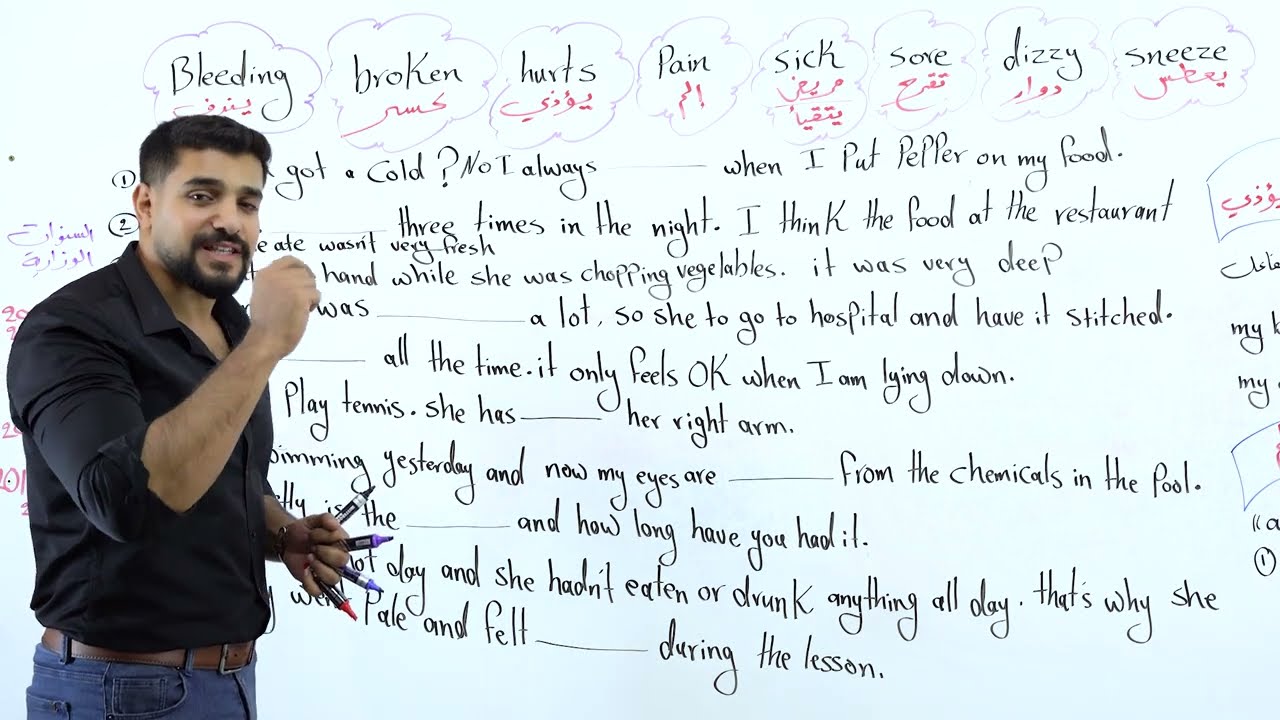 Bleeding broken hurts Pain sick sore dizzy sneeze
ينزف كسر يؤذي الم مريض تقرح دوار يعطس
يتقيأ
① got a cold? No I always ______ when I Put PePPer on my food.
② ______ three times in the night. I think the food at the restaurant
ate wasn't very fresh
hand while she was chopping vegetables. it was very deep
was ______ a lot, so she to go to hospital and have it stitched.
______ all the time. it only feels OK when I am lying down.
Play tennis. she has ______ her right arm.
yesterday and now my eyes are ______ from the chemicals in the Pool.
is the ______ and how long have you had it.
day and she hadn't eaten or drunk anything all day. that's why she
went Pale and felt ______ during the lesson.
السنوات
الوزارية
يؤذي
my
my
①